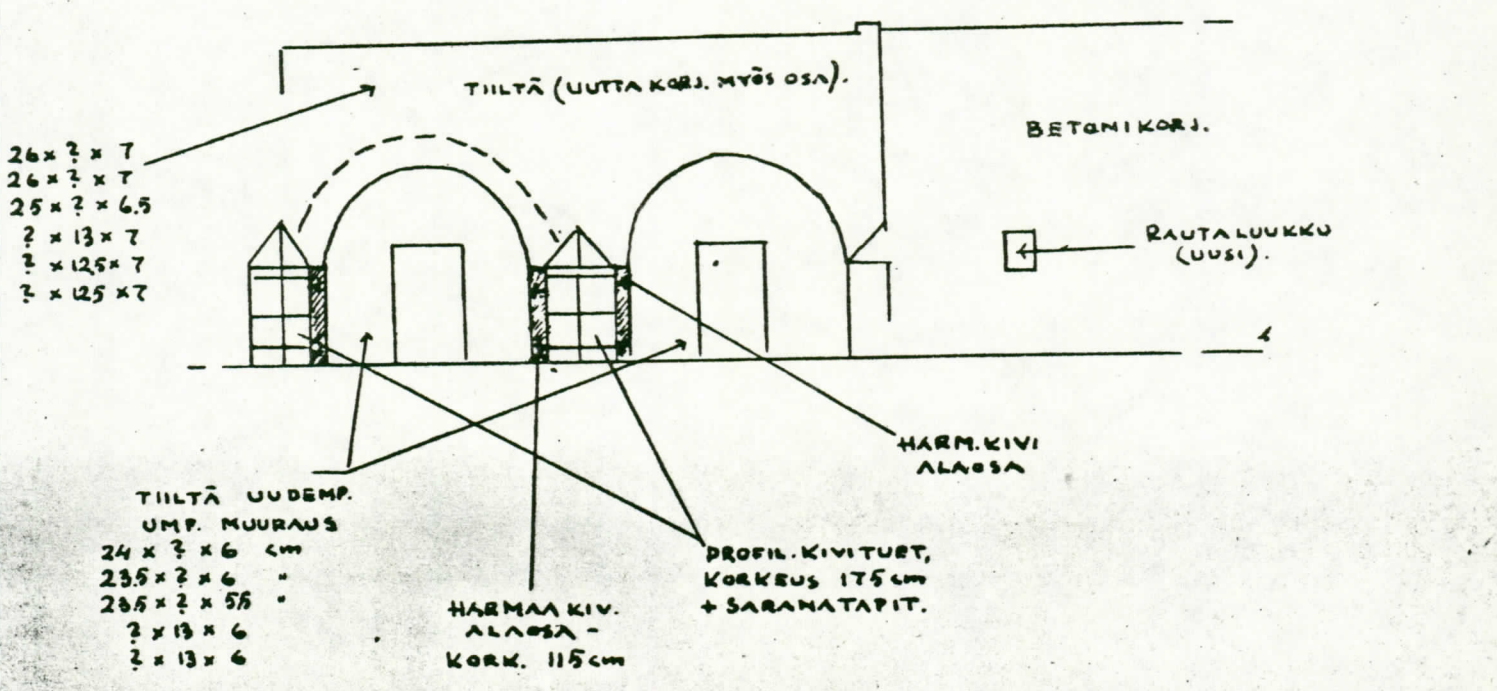 TIILTÄ (UUTTA KORJ. MYÖS OSA).
BETONIKORJ.
26 x ? x 7
26 x ? x 7
25 x ? x 6.5
? x 13 x 7
? x 12,5 x 7
? x 12,5 x 7
RAUTALUUKKU
(UUSI).
HARM.KIVI
ALAOSA
TIILTÄ UUDEMP.
UMP. MUURAUS
24 x ? x 6 cm
23.5 x ? x 6 "
23.5 x ? x 5,5 "
? x 13 x 6
? x 13 x 6
HARMAA KIV.
ALAOSA -
KORK. 115 cm
PROFIL.KIVITUET,
KORKEUS 175 cm
+ SARANATAPIT.